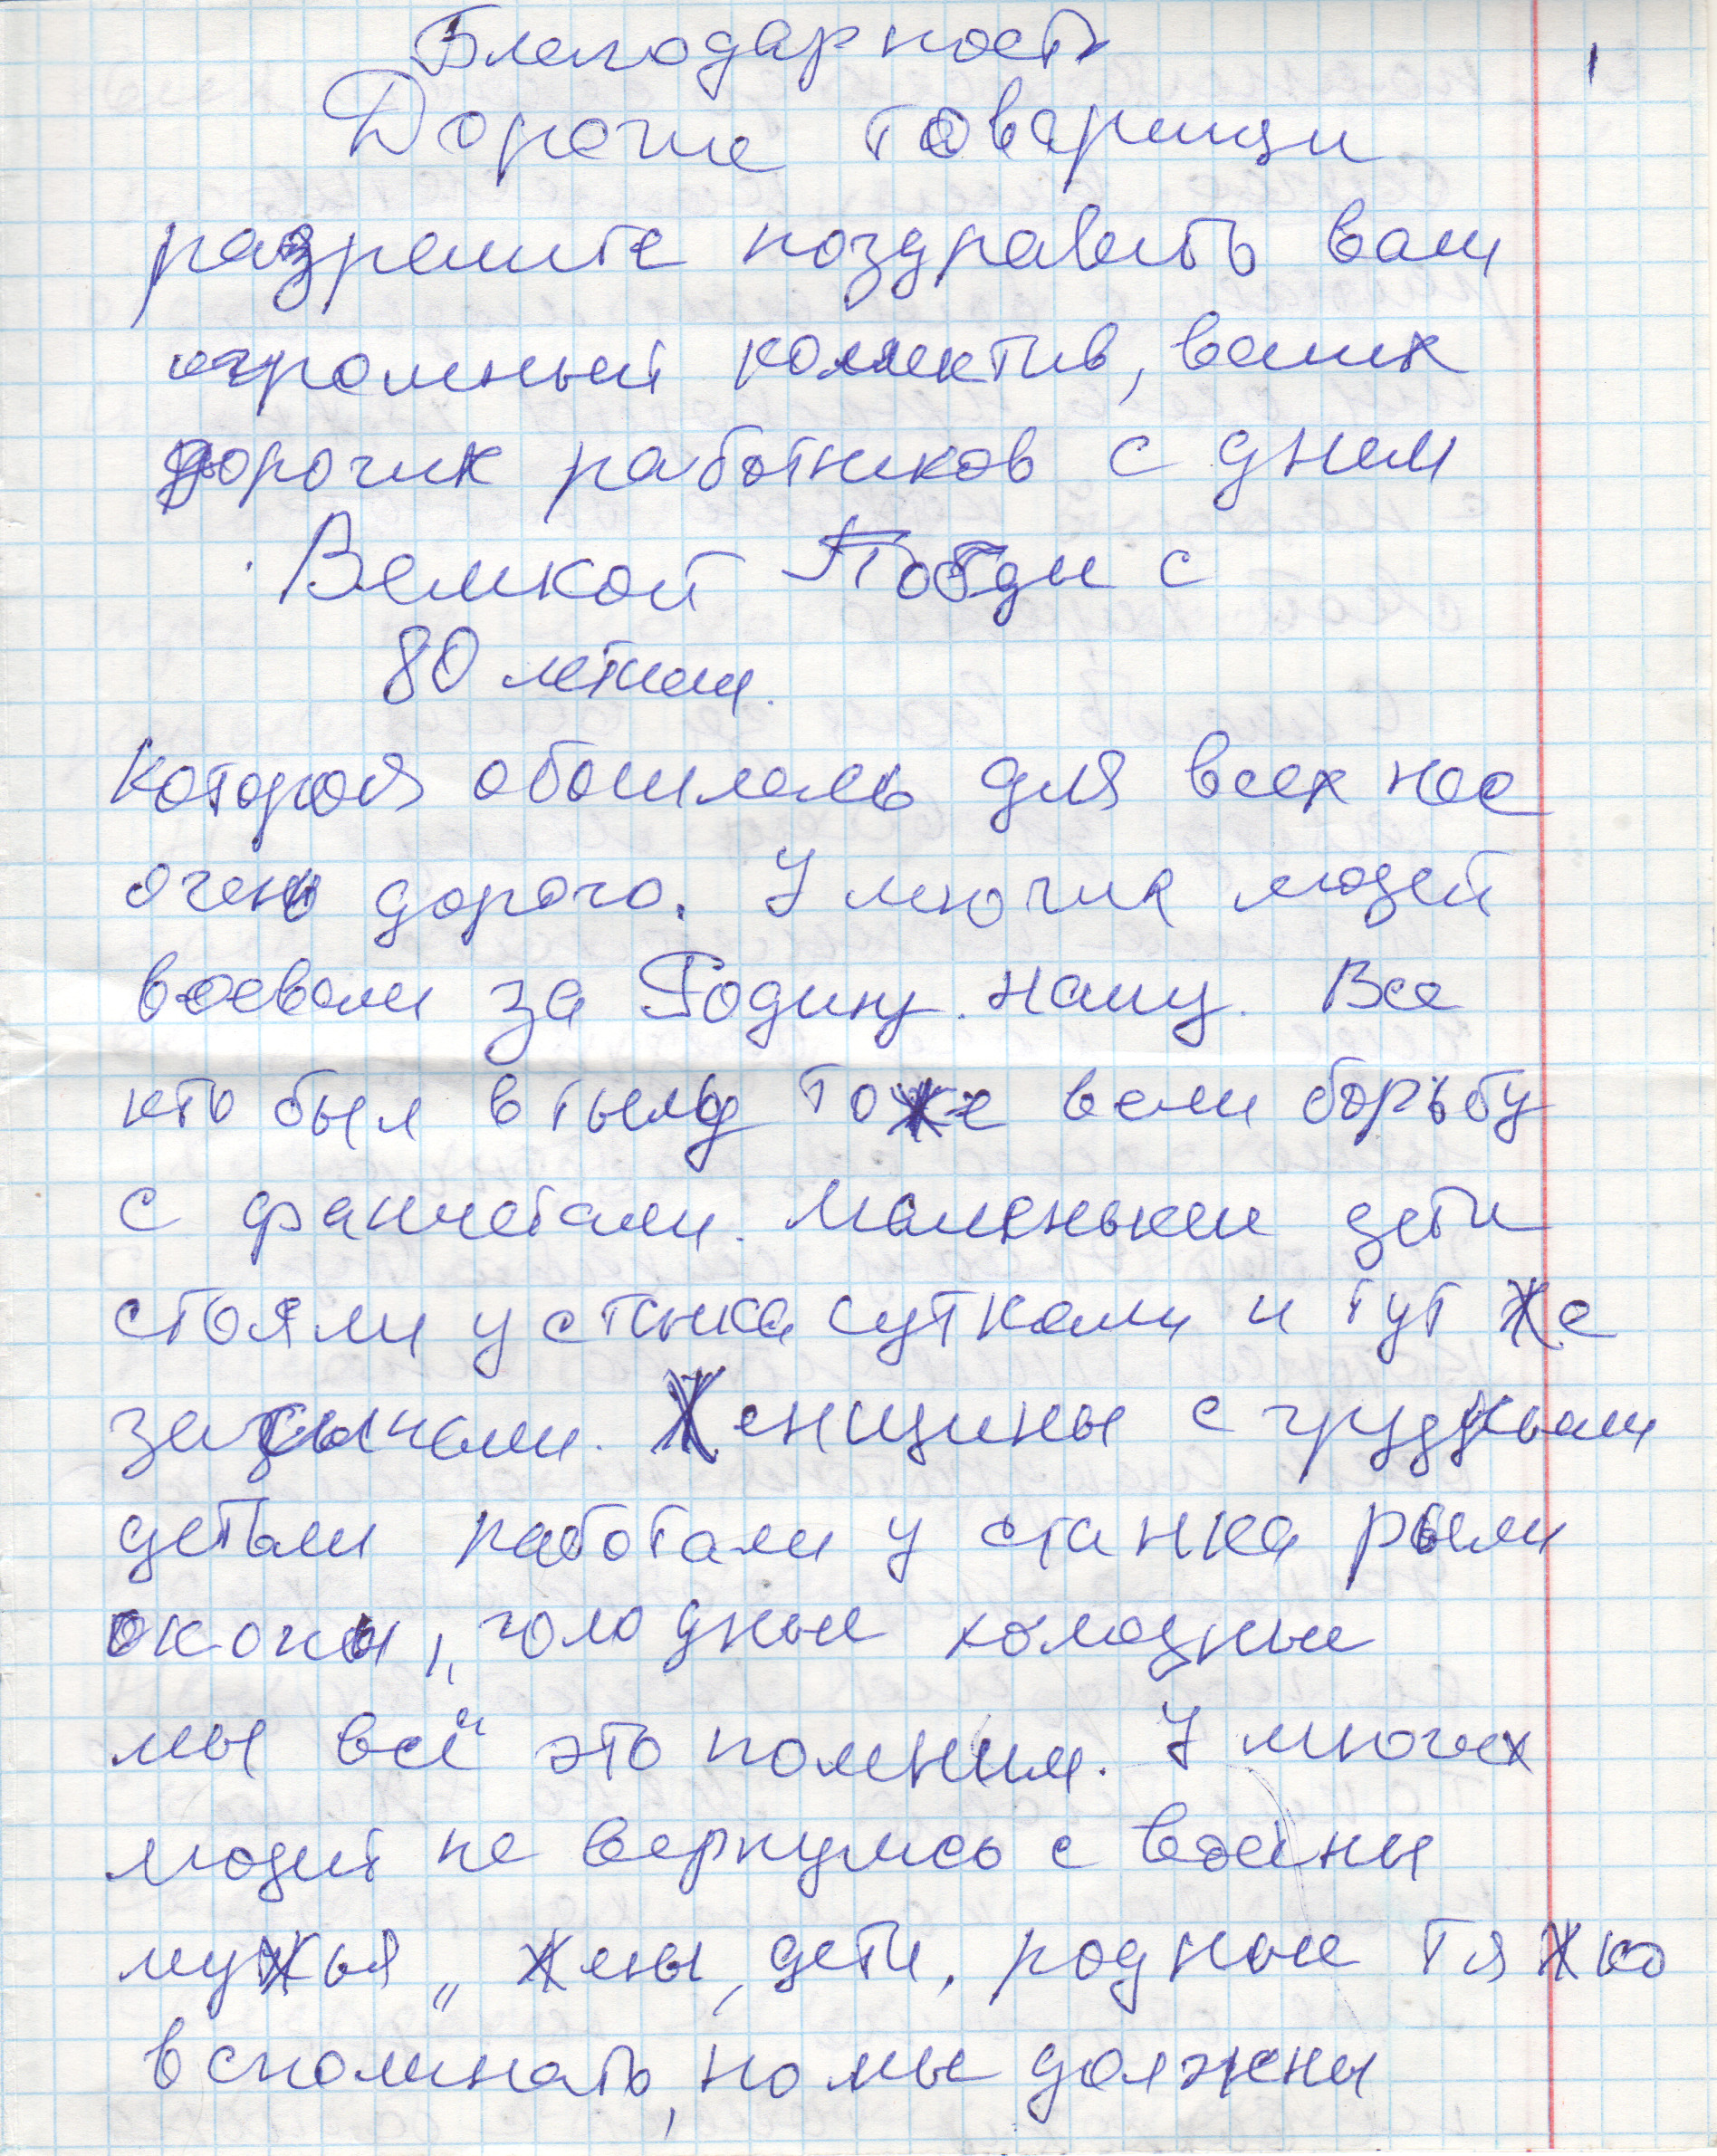 Благодарность
1
Дорогие товарищи
разрешите поздравить ваш
огромный коллектив, ваших
дорогих работников с днем
Великой Победы с
80 летием.
которая обошлась для всех нас
очень дорого. У многих людей
воевали за Родину нашу. Все
кто был в тылу тоже вели борьбу
с фашистами. Маленькие дети
стояли у станка сутками и тут же
засыпали. Женщины с грудными
детьми работали у станка рыли
окопы, голодные холодные
мы всё это помним. У многих
людей не вернулись с войны
мужья, жены, дети, родные тяжко
вспоминать, но мы должны